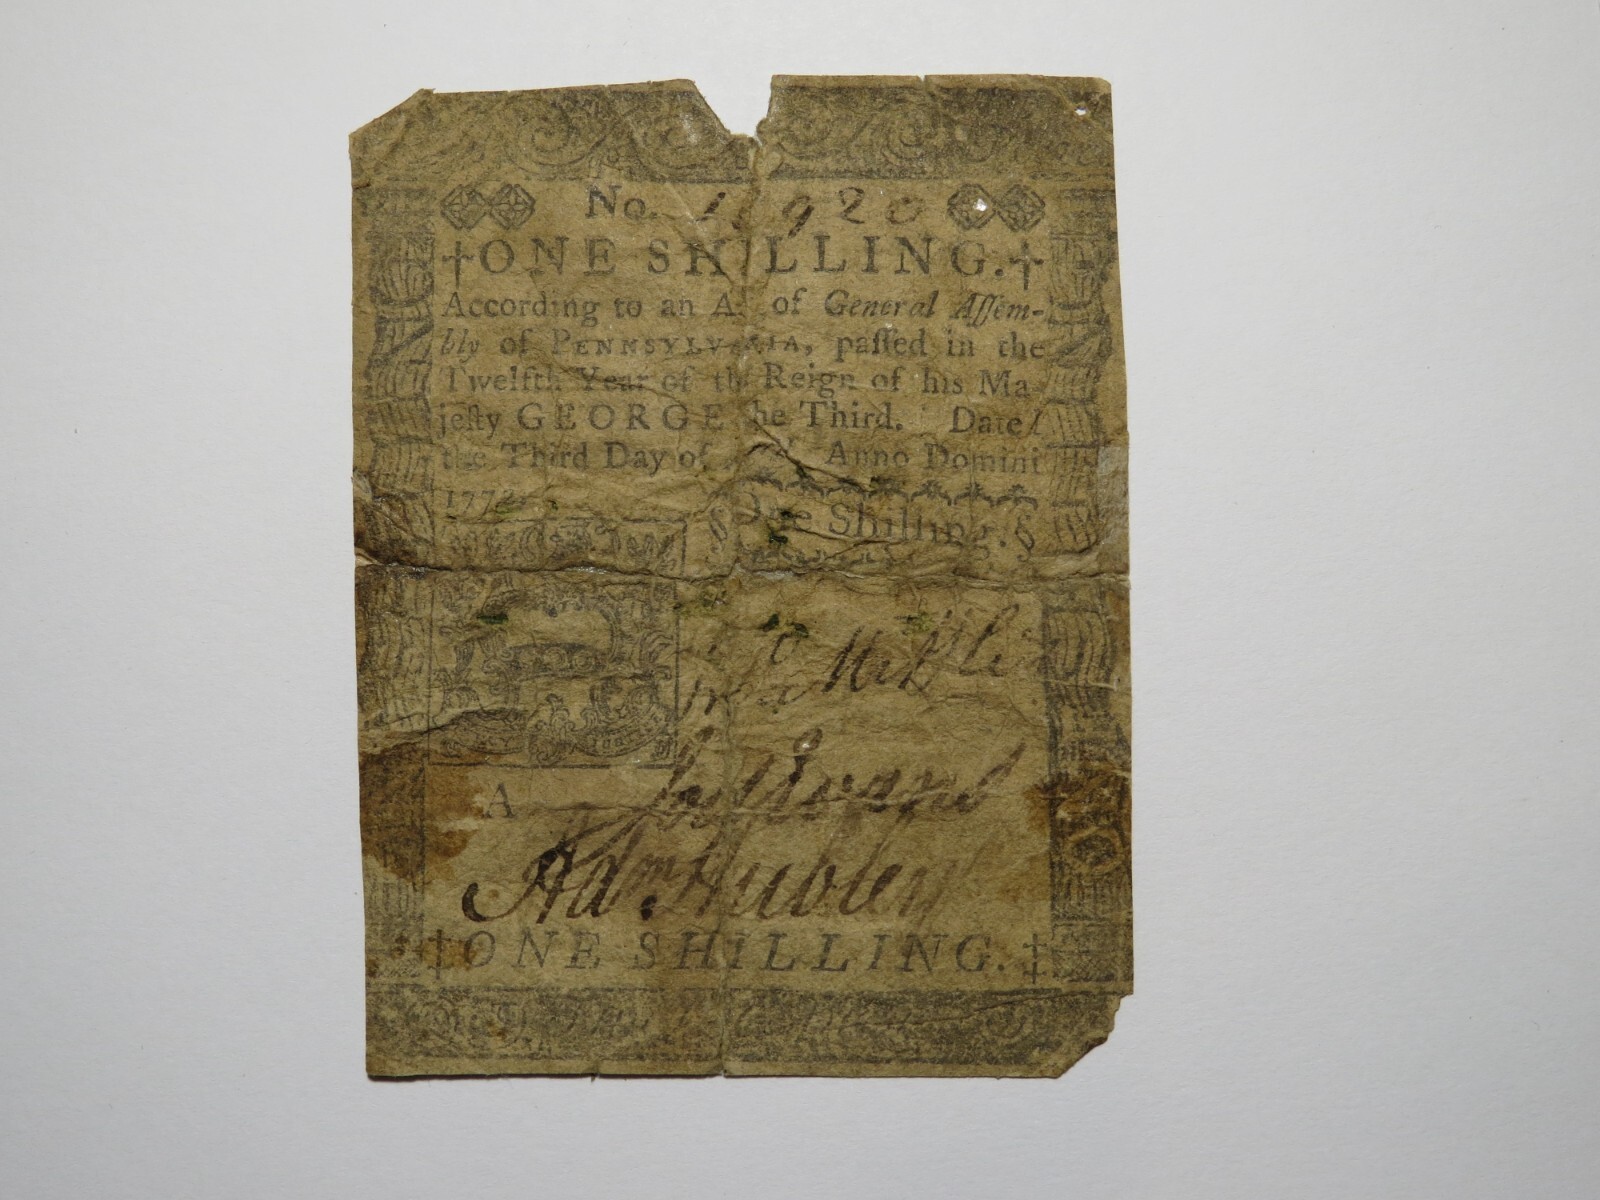 No.
†ONE SHILLING.†
According to an A of General Aſſem-
bly of PENNSYLVANIA, paſſed in the
Twelfth Year of th Reign of his Ma
jeſty GEORGE he Third. Date
the Third Day of Anno Domini
177
§ One Shilling. §
A
Adm Hubley
‡ONE SHILLING.‡